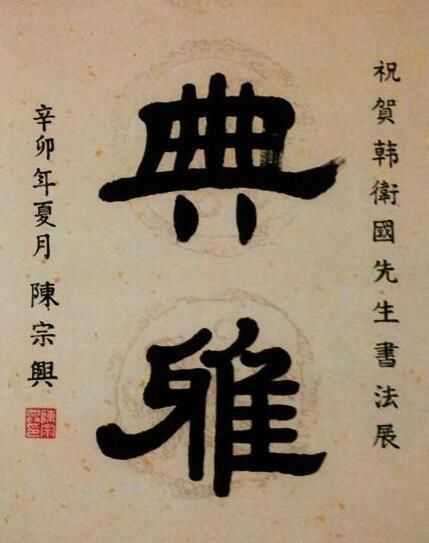 祝賀韩衛國先生書法展
典雅
辛卯年夏月 陳宗興